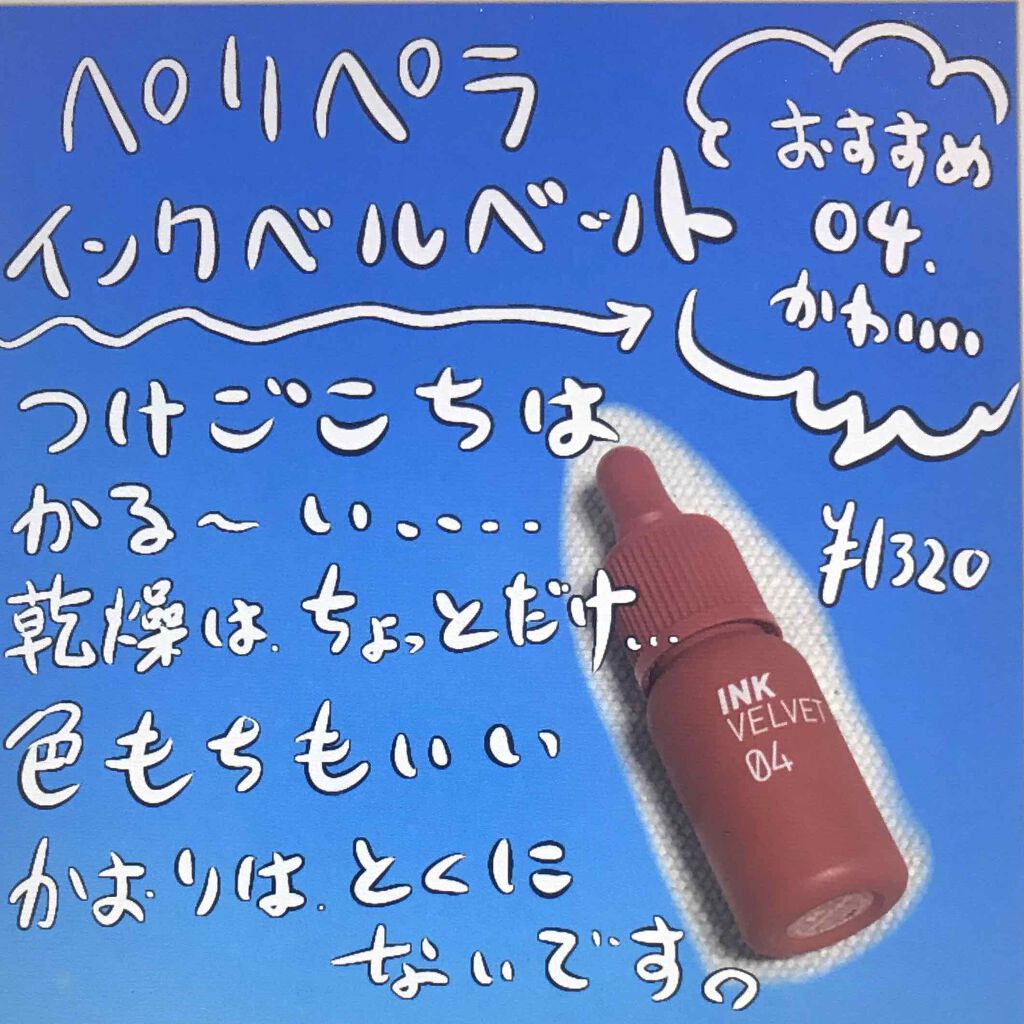 ペリペラ
インクベルベット
おすすめ
04.
かわいいい
つけごこちは
かる〜い....
¥1320
乾燥は、ちょっとだけ...
INK
VELVET
04
色もちもいい
かおりは、とくに
ないです。